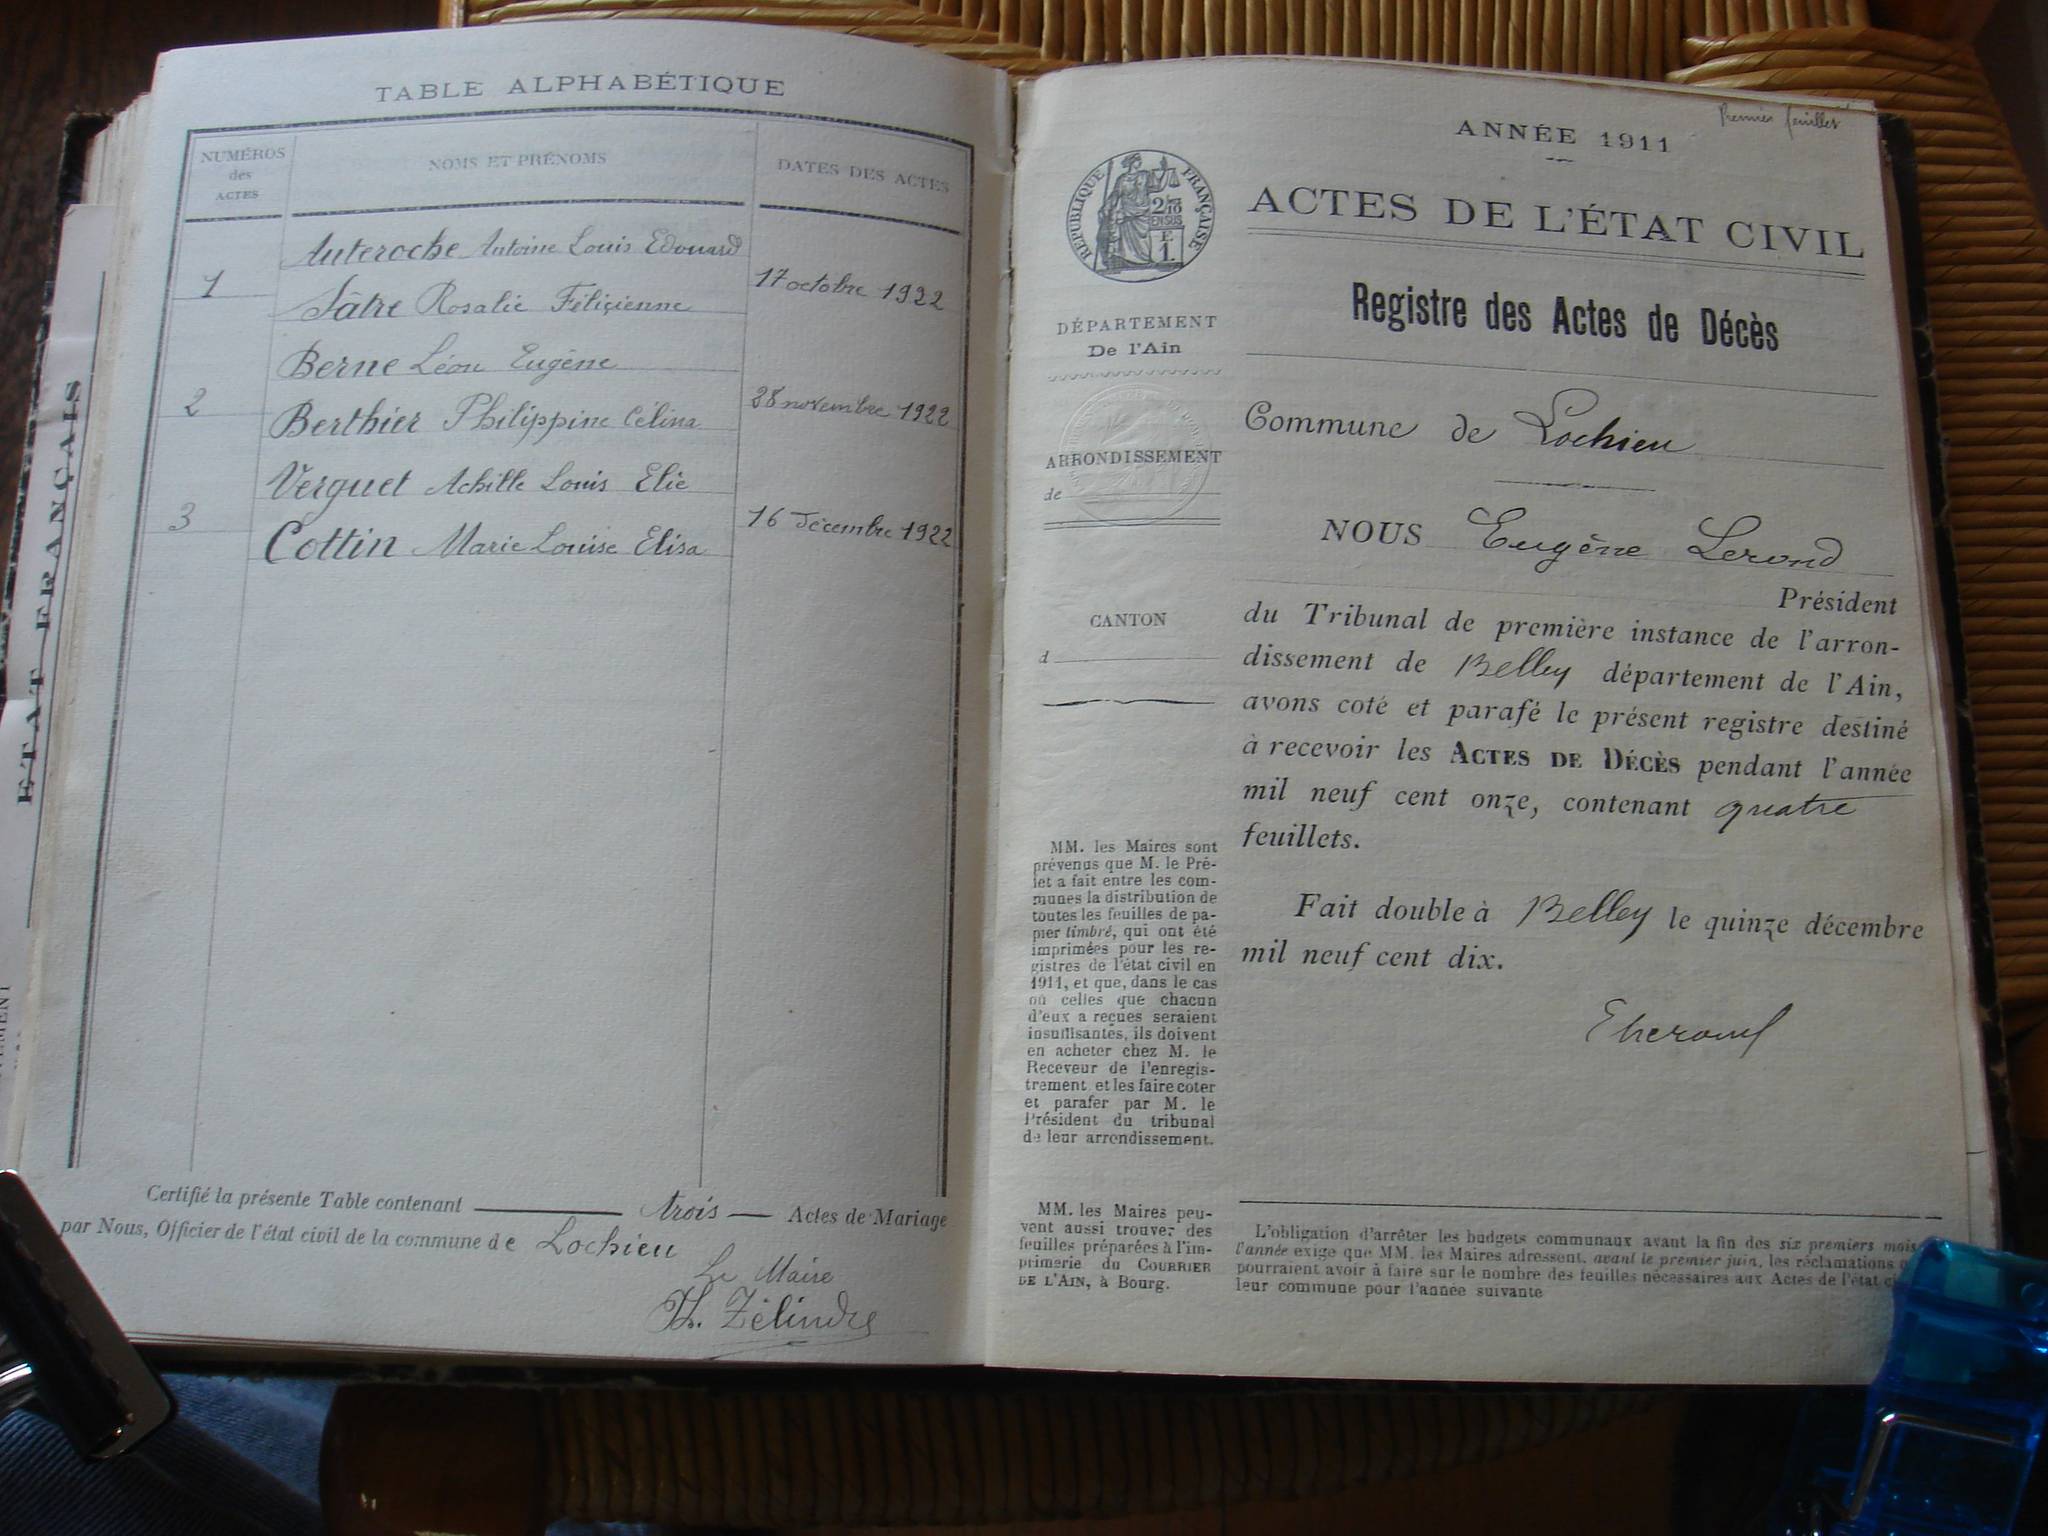 TABLE ALPHABÉTIQUE
NUMÉROS
des
ACTES
NOMS ET PRÉNOMS
DATES DES ACTES
Auteroche Antoine Louis Edouard
1
17 octobre 1922
Sâtre Rosalie Féliçienne
Berne Léon Eugène
2
28 novembre 1922
Berthier Philippine Célina
Verguet Achille Louis Elie
3
16 Décembre 1922
Cottin Marie Louise Elisa
Certifié la présente Table contenant trois Actes de Mariage
par Nous, Officier de l'état civil de la commune de Lochieu
Le Maire
Th. Zélindre
ETAT FRANÇAIS
Premier feuillet
ANNÉE 1911
RÉPUBLIQUE FRANÇAISE
ACTES DE L'ÉTAT CIVIL
Registre des Actes de Décès
DÉPARTEMENT
De l'Ain
Commune de Lochieu
ARRONDISSEMENT
de
NOUS Eugène Lerond
Président
du Tribunal de première instance de l'arron-
dissement de Belley département de l'Ain,
avons coté et parafé le présent registre destiné
à recevoir les ACTES DE DÉCÈS pendant l'année
mil neuf cent onze, contenant quatre
feuillets.
Fait double à Belley le quinze décembre
mil neuf cent dix.
CANTON
d
MM. les Maires sont
prévenus que M. le Pré-
fet a fait entre les com-
munes la distribution de
toutes les feuilles de pa-
pier timbré, qui ont été
imprimées pour les re-
gistres de l'état civil en
1911, et que, dans le cas
où celles que chacun
d'eux a reçues seraient
insuffisantes, ils doivent
en acheter chez M. le
Receveur de l'enregis-
trement et les faire coter
et parafer par M. le
Président du tribunal
de leur arrondissement.
MM. les Maires peu-
vent aussi trouver des
feuilles préparées à l'im-
primerie du COURRIER
DE L'AIN, à Bourg.
L'obligation d'arrêter les budgets communaux avant la fin des six premiers mois
l'année exige que MM. les Maires adressent, avant le premier juin, les réclamations
pourraient avoir à faire sur le nombre des feuilles nécessaires aux Actes de l'état
leur commune pour l'année suivante